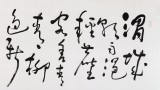 渭城
朝雨浥
輕塵
客舍青
青柳
色新